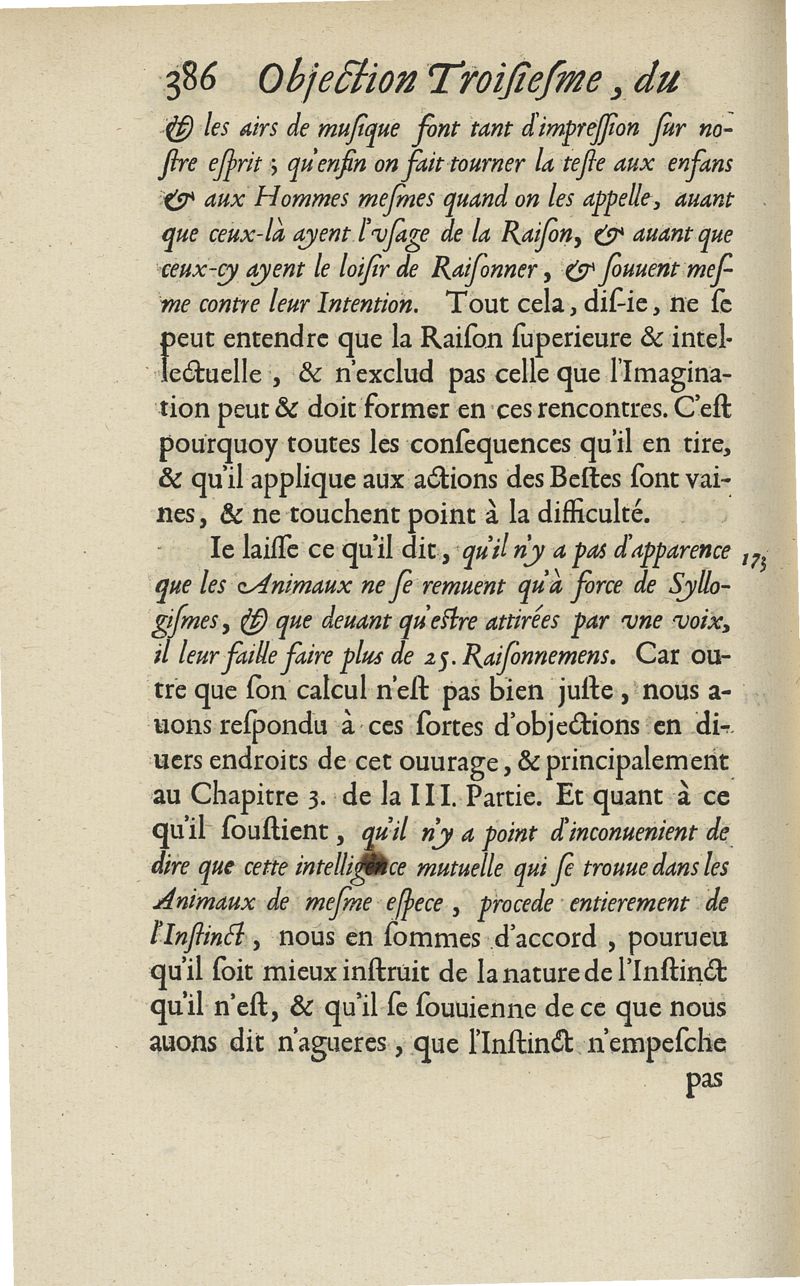 386 Objection Troiſieſme, du
& les airs de muſique font tant d'impreſſion ſur no-
ſtre eſprit ; qu'enfin on fait tourner la teſte aux enfans
& aux Hommes meſmes quand on les appelle, auant
que ceux-là ayent l'vſage de la Raiſon, & auant que
ceux-cy ayent le loiſir de Raiſonner, & ſouuent meſ-
me contre leur Intention. Tout cela, diſ-ie, ne ſe
peut entendre que la Raiſon ſuperieure & intel-
lectuelle, & n'exclud pas celle que l'Imagina-
tion peut & doit former en ces rencontres. C'eſt
pourquoy toutes les conſequences qu'il en tire,
& qu'il applique aux actions des Beſtes ſont vai-
nes, & ne touchent point à la difficulté.
Ie laiſſe ce qu'il dit, qu'il n'y a pas d'apparence 173
que les Animaux ne ſe remuent qu'à force de Syllo-
giſmes, & que deuant qu'eſtre attirées par vne voix,
il leur faille faire plus de 25. Raiſonnemens. Car ou-
tre que ſon calcul n'eſt pas bien juſte, nous a-
uons reſpondu à ces ſortes d'objections en di-
uers endroits de cet ouurage, & principalement
au Chapitre 3. de la III. Partie. Et quant à ce
qu'il ſouſtient, qu'il n'y a point d'inconuenient de
dire que cette intelligence mutuelle qui ſe trouue dans les
Animaux de meſme eſpece, procede entierement de
l'Inſtinct, nous en ſommes d'accord, pourueu
qu'il ſoit mieux inſtruit de la nature de l'Inſtinct
qu'il n'eſt, & qu'il ſe ſouuienne de ce que nous
auons dit n'agueres, que l'Inſtinct n'empeſche
pas